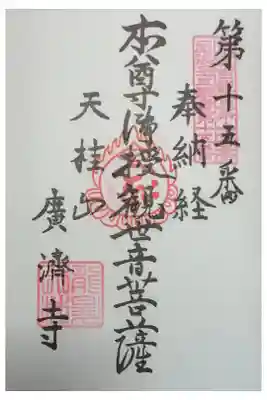 第十五番
奉納経
本尊佛授観世音菩薩
天桂山
廣濟寺